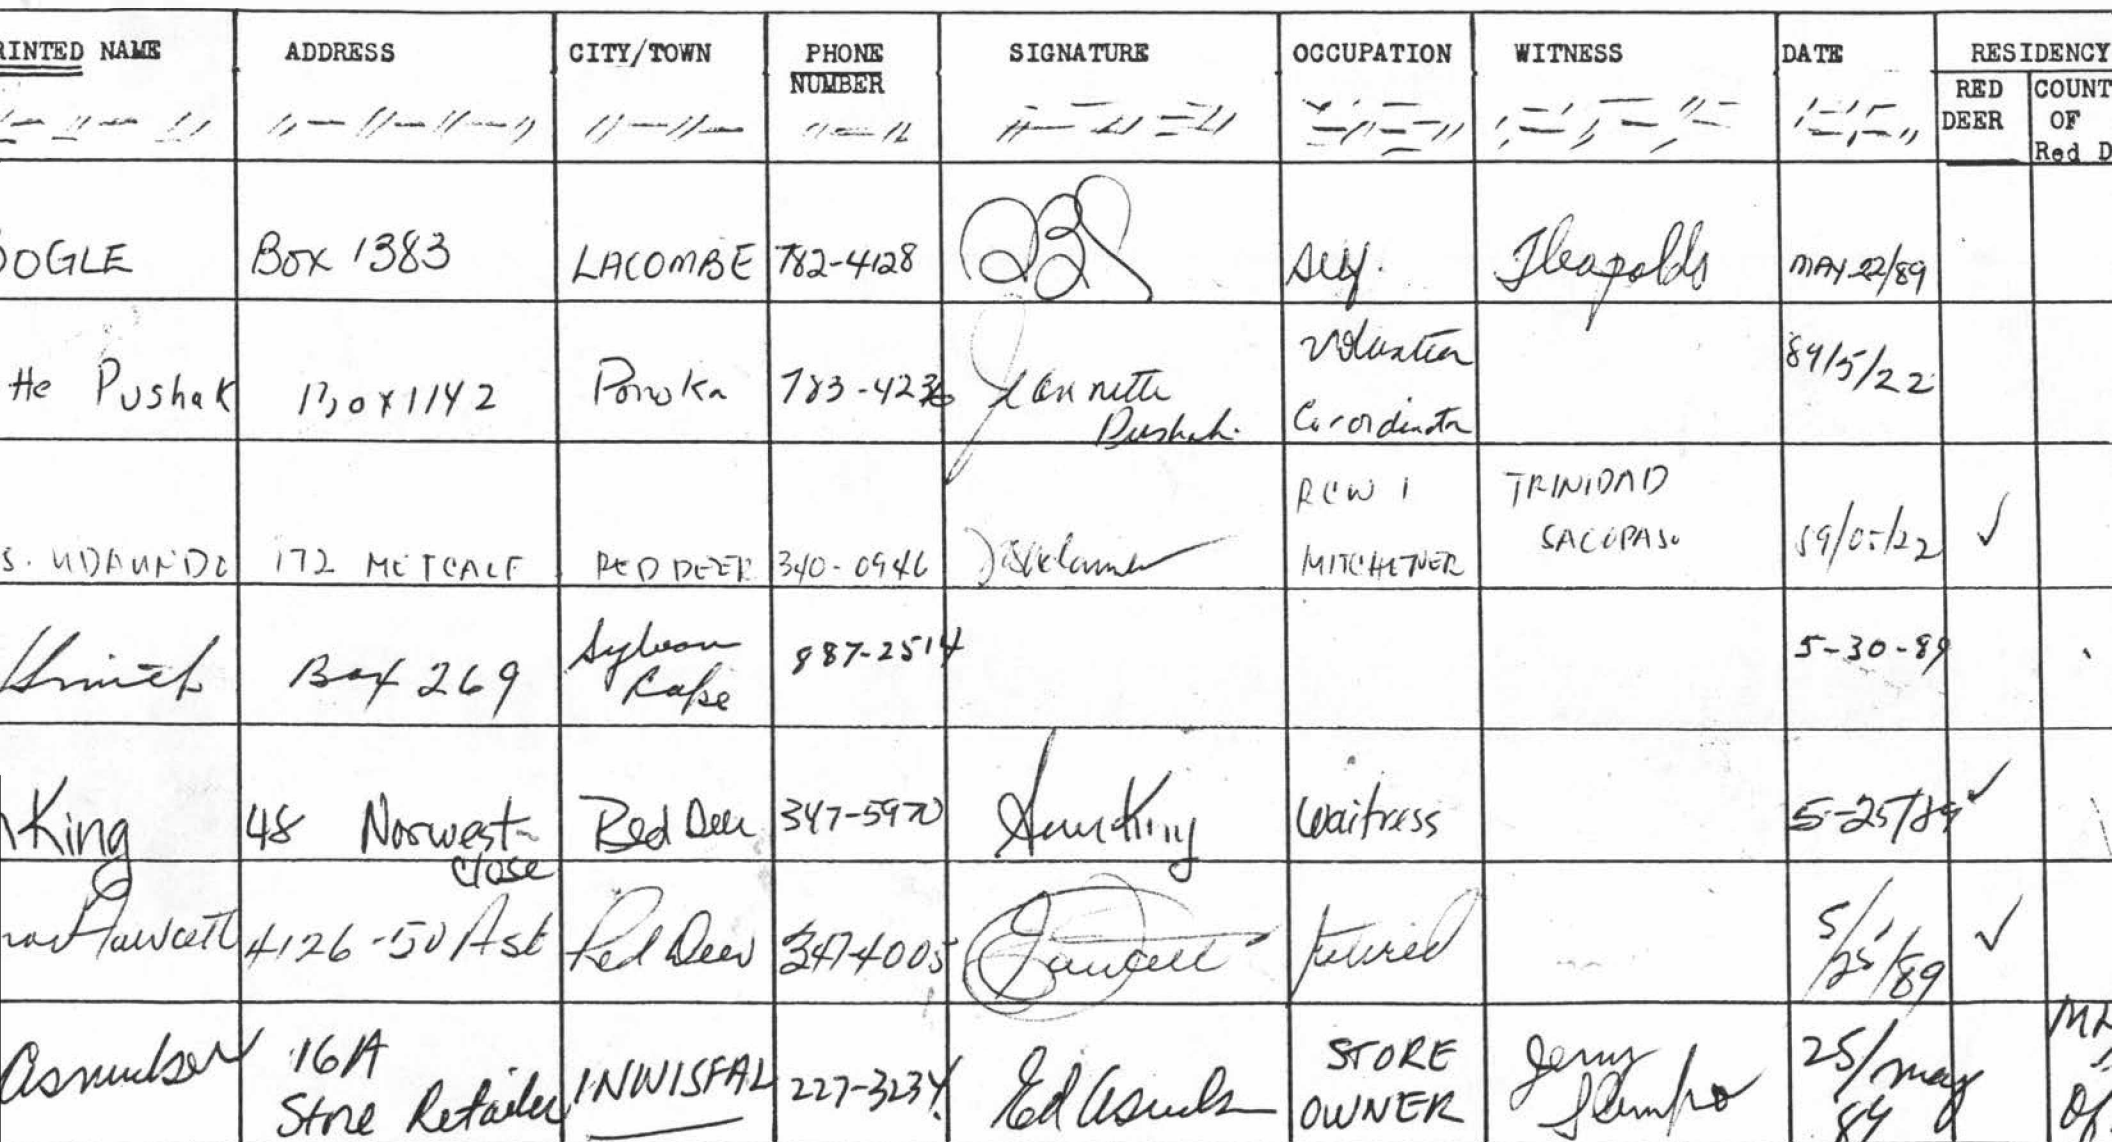 RINTED NAME ADDRESS CITY/TOWN PHONE NUMBER SIGNATURE OCCUPATION WITNESS DATE RESIDENCY
RED DEER COUNT OF Red D
OGLE Box 1383 LACOMBE 782-4128 Self. MAY 22/89
tte Pushak Box 1142 Ponoka 783-4236 Jeannette Pushak. Volunteer Co-ordinator 89/5/22
S. 172 METCALF RED DEER 340-0946 RCW 1 MITCHENER TRINIDAD 89/05/22 ✓
Smith Box 269 Sylvan Lake 887-2514 5-30-89
King 48 Norwest Close Red Deer 347-5970 King Waitress 5-25/89 ✓
Fawcett 4126-50 A St Red Deer 347-4005 Fawcett retired 5/25/89 ✓
16A Store Retailer INNISFAL 227-3234 Ed STORE OWNER Jerry 25/may 89